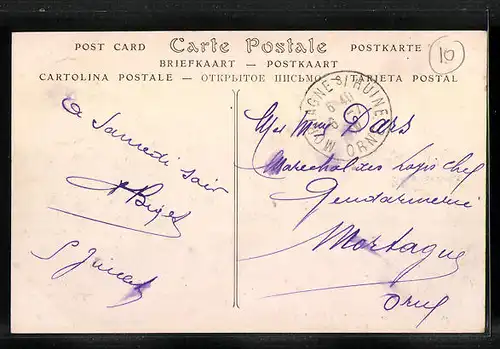 POST CARD Carte Postale POSTKARTE
BRIEFKAART — POSTKAART
CARTOLINA POSTALE — ОТКРЫТОЕ ПИСЬМО — TARJETA POSTAL
10
MORTAGNE S/ HUINE
6-40
ORNE
à Samedi soir
Dars
Marechal des Logis chef
Gendarmerie
Mortagne
Orne